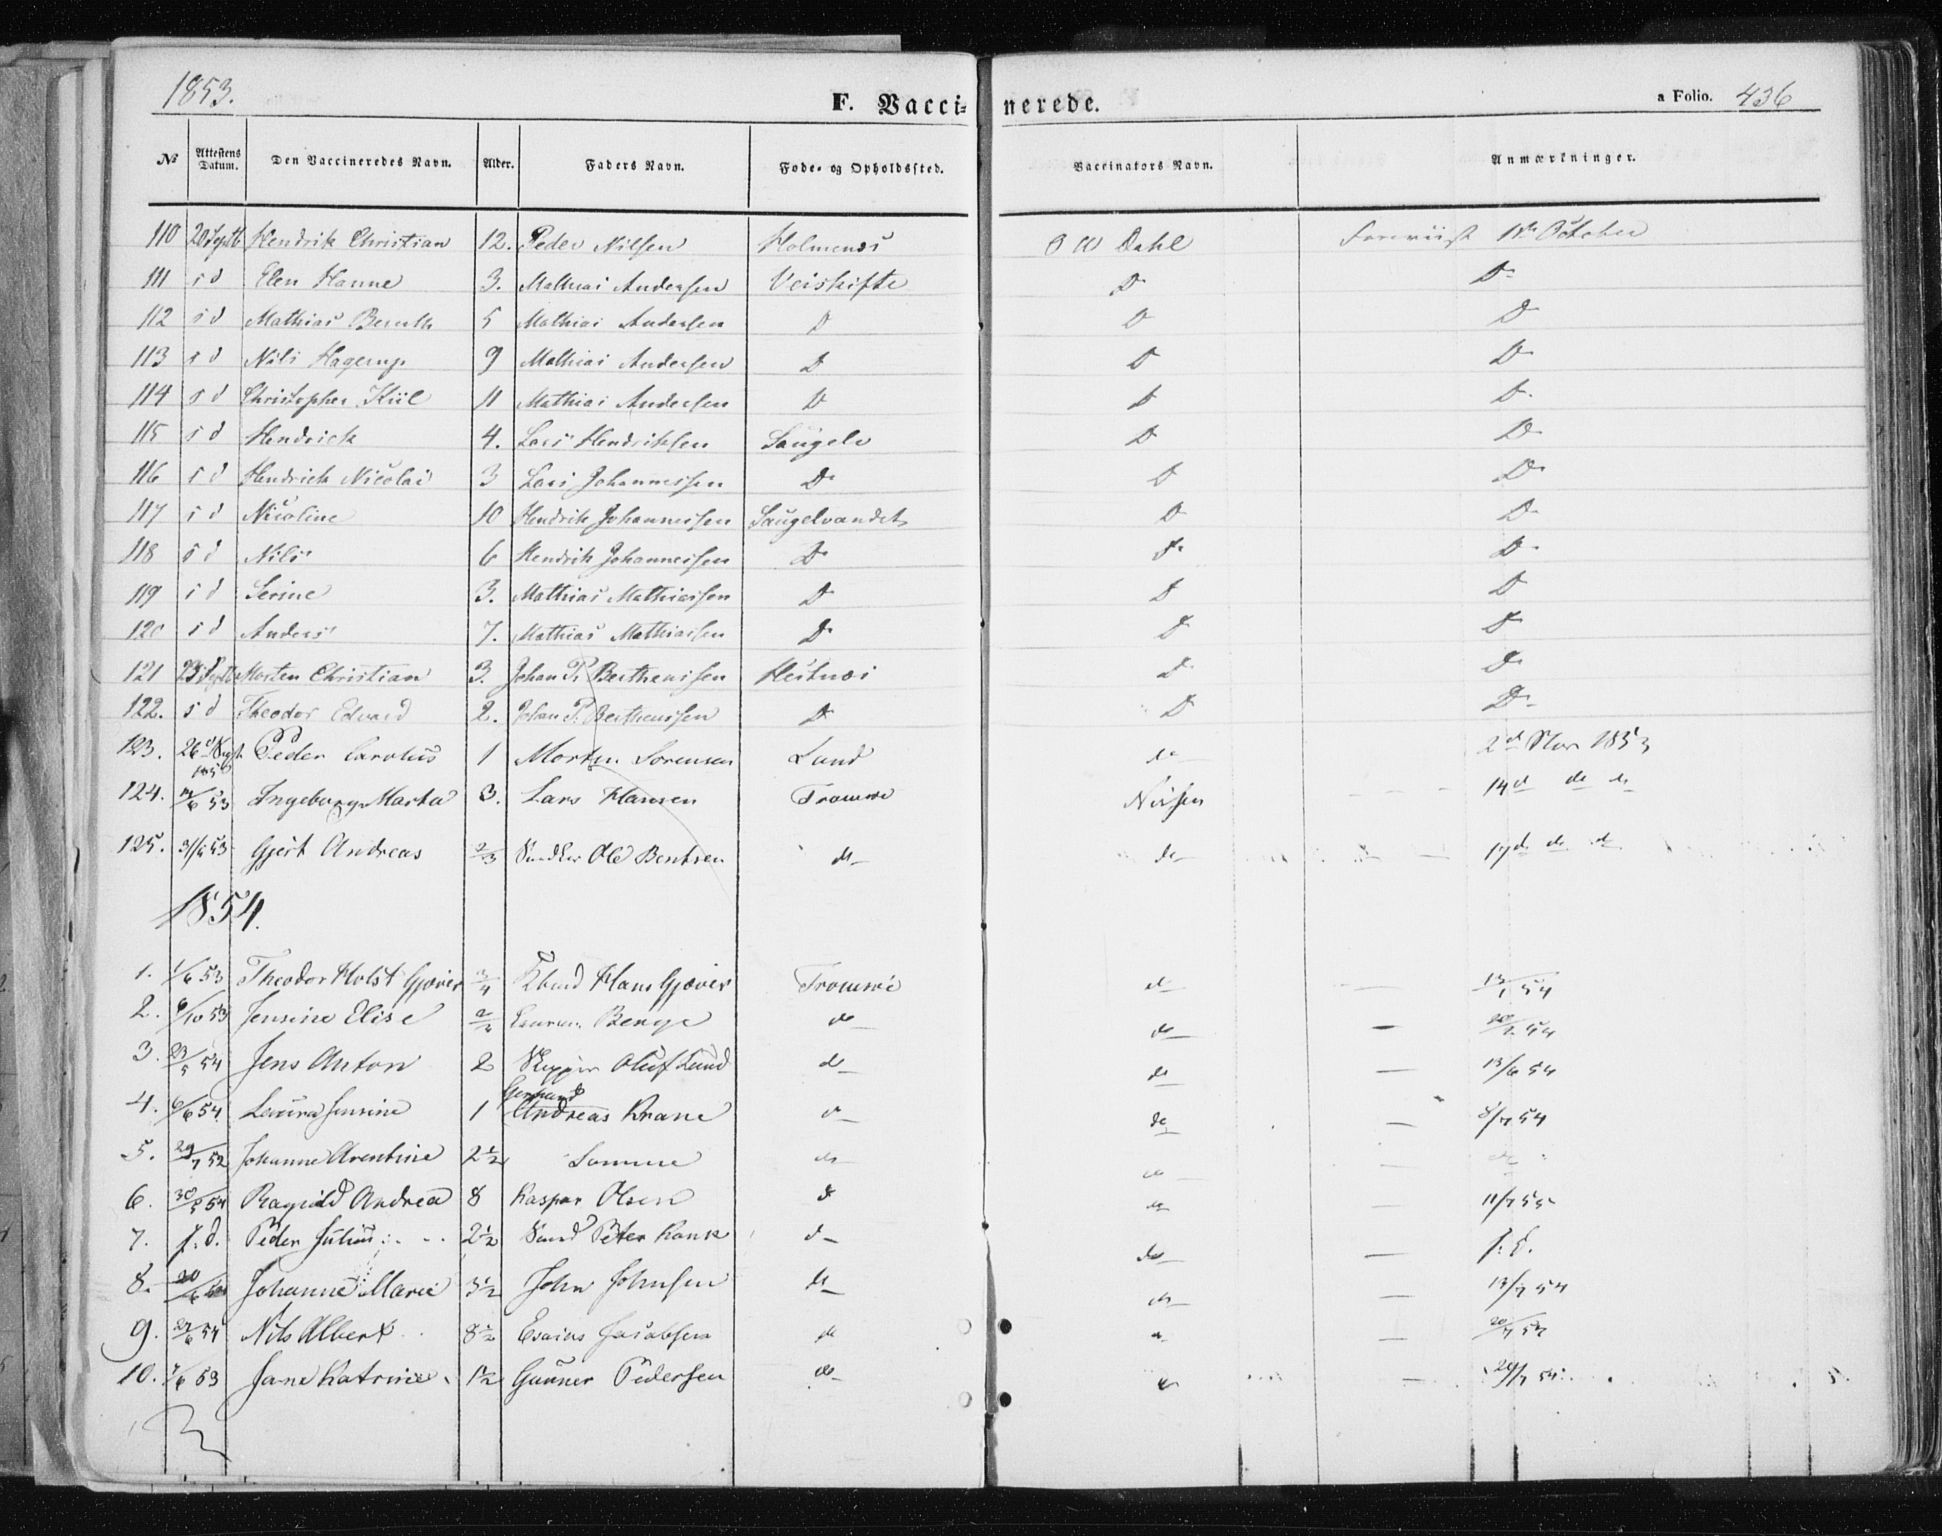 1853.
F. Vaccinerede.
a Folio. 436
No Attestens Datum. Den Vaccineredes Navn. Alder. Faders Navn. Føde- og Opholdssted. Vaccinators Navn. Anmærkninger.
110 20 Septb Hendrik Christian 12. Peder Nilsen Holmenes O W Dahl Foreviist 1ste October
111 s d Elen Hanne 3. Mathias Andersen Veiskifte D D
112 s d Mathias 5 Mathias Andersen D D D
113 s d Nils Hagerup 9 Mathias Andersen D D D
114 s d Christopher Kiil 11 Mathias Andersen D D D.
115 s d Hendrick 4. Lars Hendriksen Saugelv D D
116 s d Hendrick Nicolai 3 Lars Johannessen D D D
117 s d Nicoline 10 Hendrik Johannessen Saugelvandet D D
118 s d Nils 6 Hendrik Johannessen D D D
119 s d Serine 3. Mathias Mathiassen D D D
120 s d Anders 7. Mathias Mathiassen D D D
121 23 Septb Morten Christian 3. Johan P. Bertheussen Hestnæs D D
122. s d Theodor Edvard 2. Johan P. Bertheussen D D D
123. 26 Peder Carolus 1 Morten Sorensen Lund do 2d Nov 1853
124. 53 Ingeborg Marka 3. Lars Hansen Tromsøe 14d do do
125. 53 Gjert Andreas 2/3 Ole Bentsen do do 17d do do
1854.
1. 1/6 53 Theodor Holst Gjæver 3/4 Hans Gjæver Tromsøe do 13/1 54
2. 6/10 53 Jensine Elise Benge do do 54
3. 23/5 54 Jens Anton 2 Skipper Oluf Lund do do 13/6 54
4. 6/6 54 Laura Jensine 1 Andreas Krane do do 8/7 54
5. 29/7 52 Johanne Arentine 2 1/2 Samme do do do
6. 30/5 54 Ragnild Andrea 8 Kaspar Olsen d do 11/7 55
7. s. d. Peder Julius 2 1/2 Peter Hank d do s. d.
8. Johanne Marie 3 1/2 John Johnsen do do 13/7 54
9. 27/6 54 Nils Albert 8 1/2 Esaias Jacobsen do do 20/7 54
10. 7/6 53 Jane Katrine 1 1/2 Gunner Pedersen do do 29/7 54